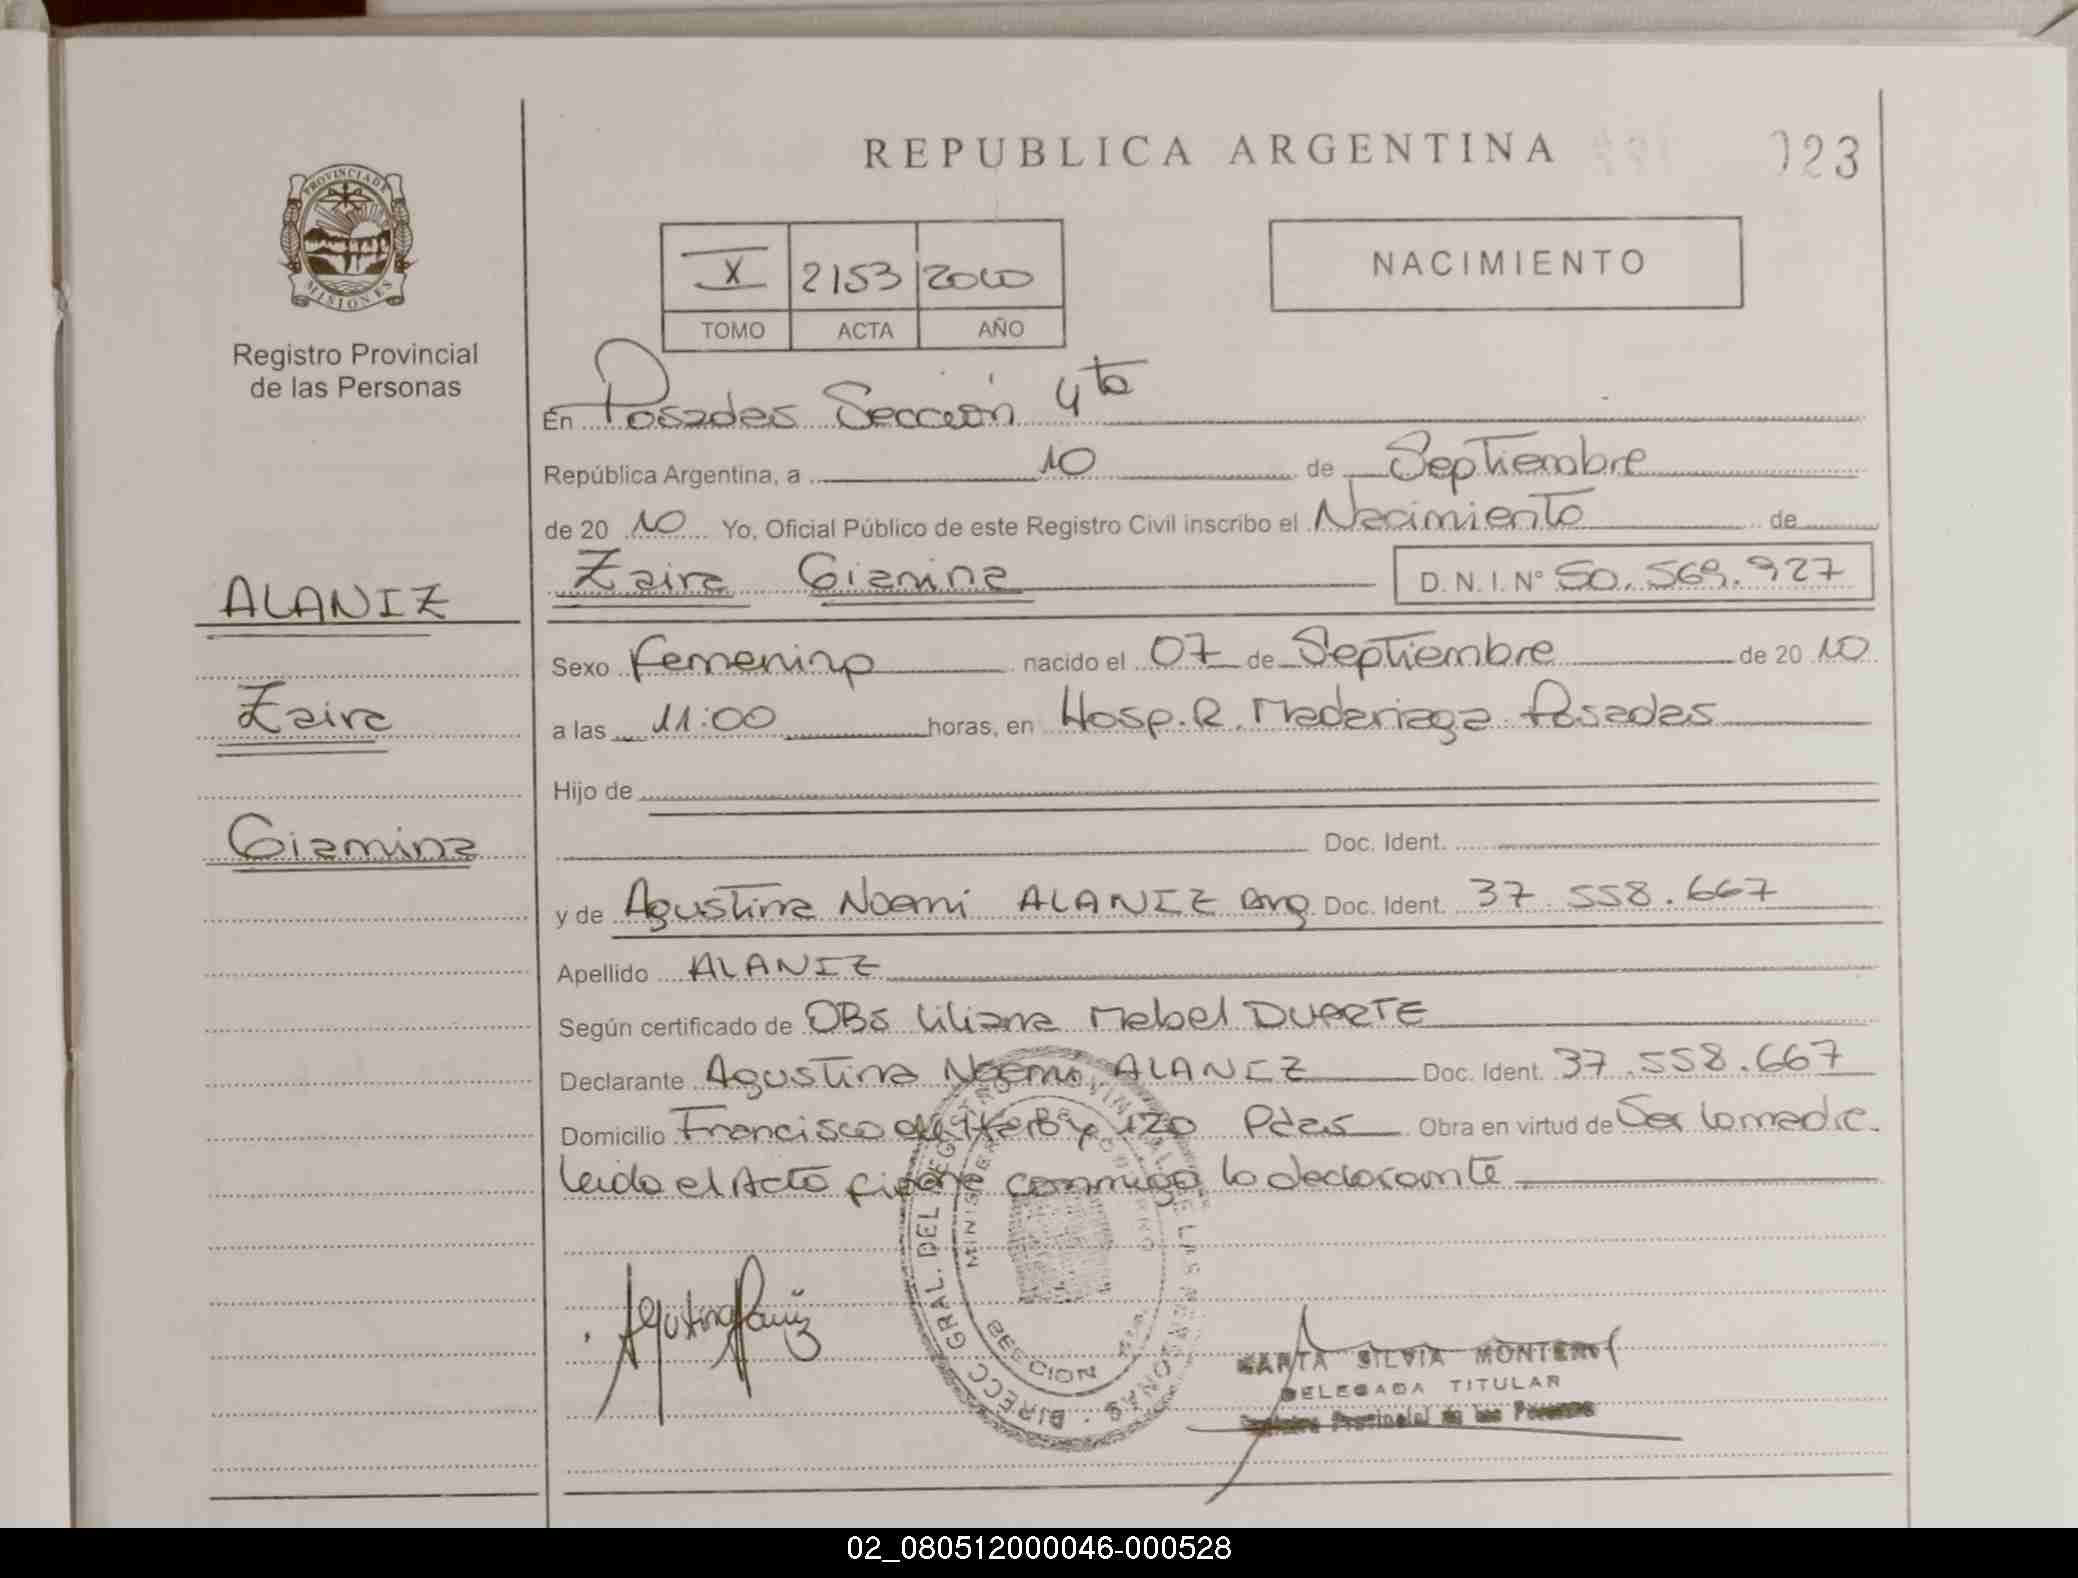 REPUBLICA ARGENTINA
023
PROVINCIA DE
MISIONES
Registro Provincial
de las Personas
X 2153 2010
TOMO ACTA AÑO
NACIMIENTO
En Posadas Sección 4ta
República Argentina, a 10 de Septiembre
de 20 10 Yo, Oficial Público de este Registro Civil inscribo el Nacimiento de
Zaira Gianina D.N.I. Nº 50.569.927
ALANIZ
Zaira
Gianina
Sexo Femenino nacido el 07 de Septiembre de 20 10
a las 11:00 horas, en Hosp. R. Madariaga Posadas
Hijo de
Doc. Ident.
y de Agustina Noemi ALANIZ Arg Doc. Ident. 37.558.667
Apellido ALANIZ
Según certificado de OBS Liliana Mabel DUARTE
Declarante Agustina Noemi ALANIZ Doc. Ident. 37.558.667
Domicilio Francisco de 120 Pdas Obra en virtud de Ser la madre.
leido el Acto firma conmigo la declarante
Agustina Alaniz
DIRECC. GRAL. DEL REGISTRO PROVINCIAL DE LAS PERSONAS
MINISTERIO DE GOBIERNO
SECCION 4ta
MARTA SILVIA MONTERO
DELEGADA TITULAR
Registro Provincial de las Personas
02_080512000046-000528